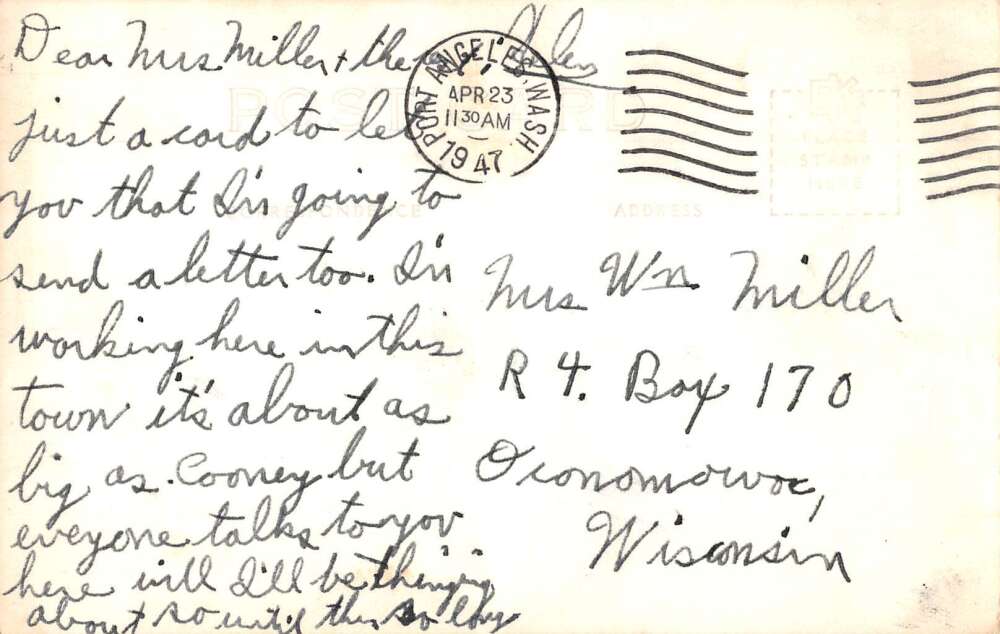 Dear Mrs Miller + there Helen
just a card to let
you that I'm going to
send a letter too. I'm
working here in this
town it's about as
big as Cooney but
everyone talks to you
here will I'll be
about so until then so long
PORT ANGELES, WASH.
APR 23
11 30 AM
1947
POST CARD
CORRESPONDENCE
ADDRESS
PLACE
STAMP
HERE
Mrs Wm Miller
R 4. Box 170
Oconomowoc,
Wisconsin